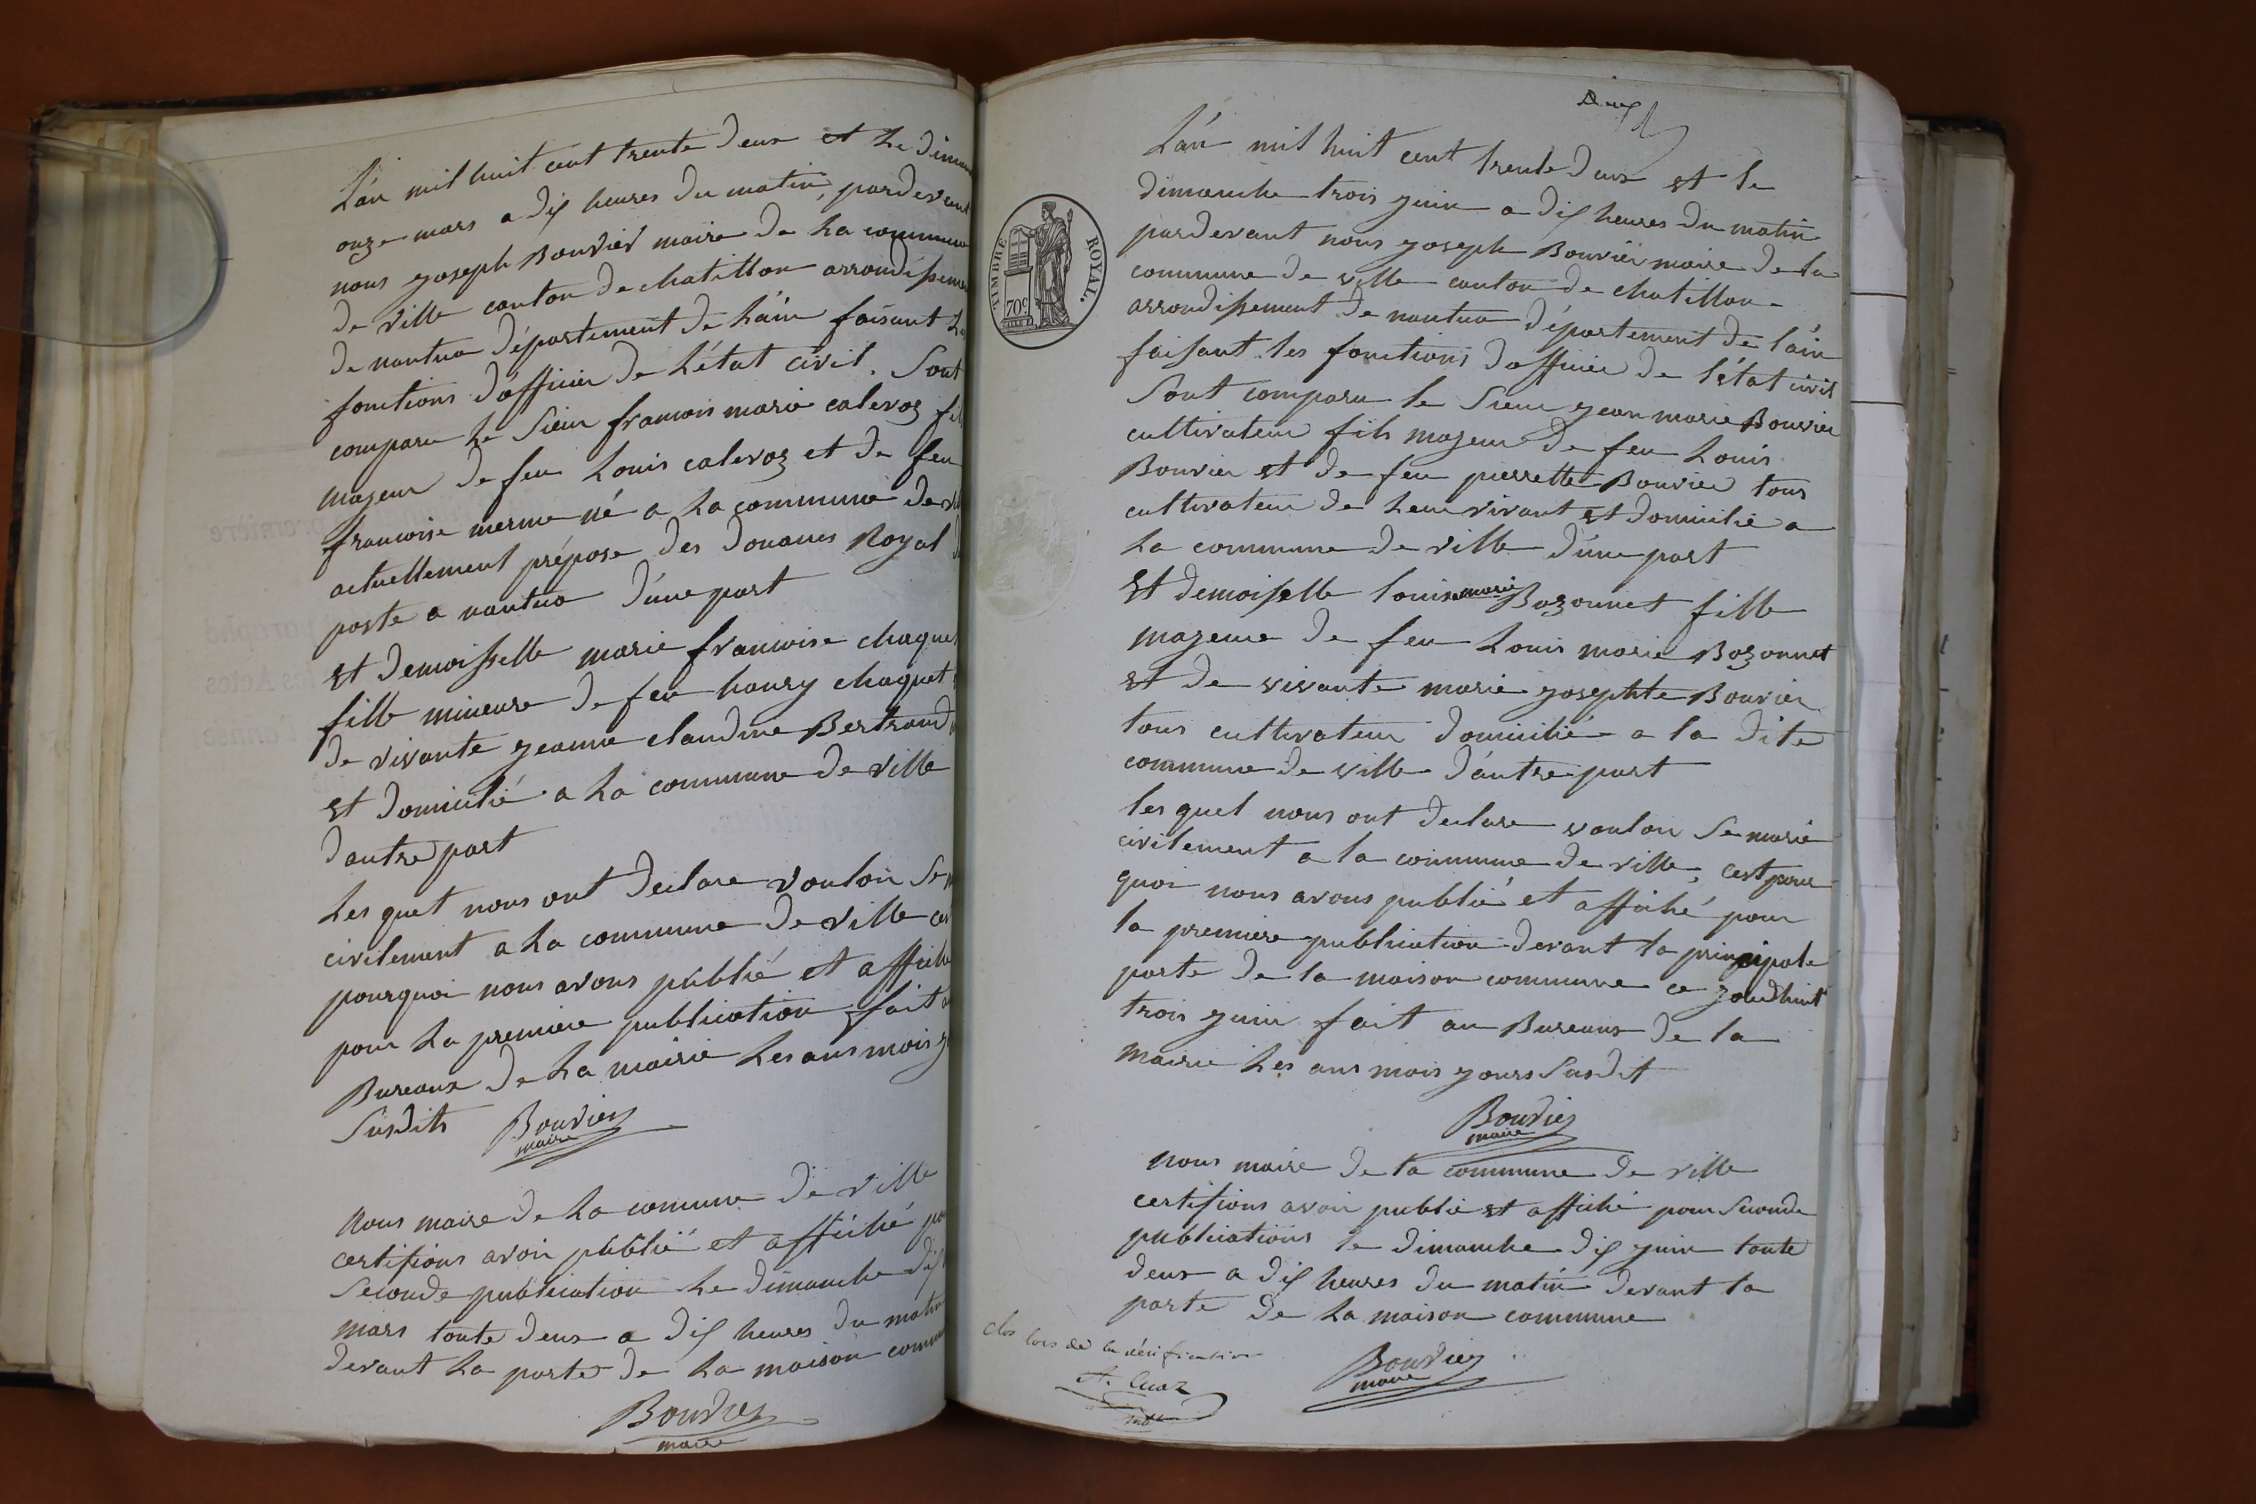 L'an mil huit cent trente deux et le diman
onze mars a dix heures du matin, pardevant
nous joseph Bouvier maire de la commune
de ville canton de chatillon arrondissemen
de nantua département de l'ain faisant
fonctions d'officier de l'état civil. Sont
comparu le Sieur francois marie calevoz fil
majeur de feu Louis calevoz et de feu
francoise merme né a la commune de
actuellement préposé des douanes Royal
poste a nantua d'une part
et demoisselle marie francoise chaque
fille mineure de feu hanry chaquet
de vivante jeanne claudine Bertrand
et domicilié a la commune de ville
d'autre part
Les quet nous ont declare vouloir Se
civilement a la commune de ville ces
pourquoi nous avons publié et affiche
pour la premiere publication fait
Bureaux de la mairie les ans mois
Susdits Bouvier
maire
Nous maire de la comune de ville
certifions avoir publié et affiché
Seconde publication le dimanche dix
mars toute deux a dix heures du matin
devant la porte de la maison comm
Bouvier
maire
Deux
L'an mil huit cent trente deux et le
dimanche trois juin a dix heures du matin
pardevant nous joseph Bouvier maire de la
commune de ville canton de chatillon
arrondissement de nantua département de l'ain
faisant les fonctions d'officier de l'état civil
Sont comparu le Sieur jean marie Bouvier
cultivateur fils majeur de feu Louis
Bouvier et de feu pierrette Bouvier tous
cultivateur de leur vivant et domicilié a
la commune de ville d'une part
et demoiselle louise marie Bozonnet fille
majeure de feu Louis marie Bozonnet
et de vivante marie josephte Bouvier
tous cultivateur domicilié a la dite
commune de ville d'autre part
les quel nous ont declare vouloir Se marie
civilement a la commune de ville, cest pour
quoi nous avons publié et affiché pour
la premiere publication devant la principale
porte de la maison commune ce jourdhuit
trois juin fait au Bureaux de la
mairie les ans mois jours Susdit
Bouvier
maire
Nous maire de la commune de ville
certifions avoir publié et affiché pour Seconde
publications le dimanche dix juin toute
deux a dix heures du matin devant la
porte de la maison commune
Bouvier
maire
clos lors de la vérification
TIMBRE ROYAL.
70c